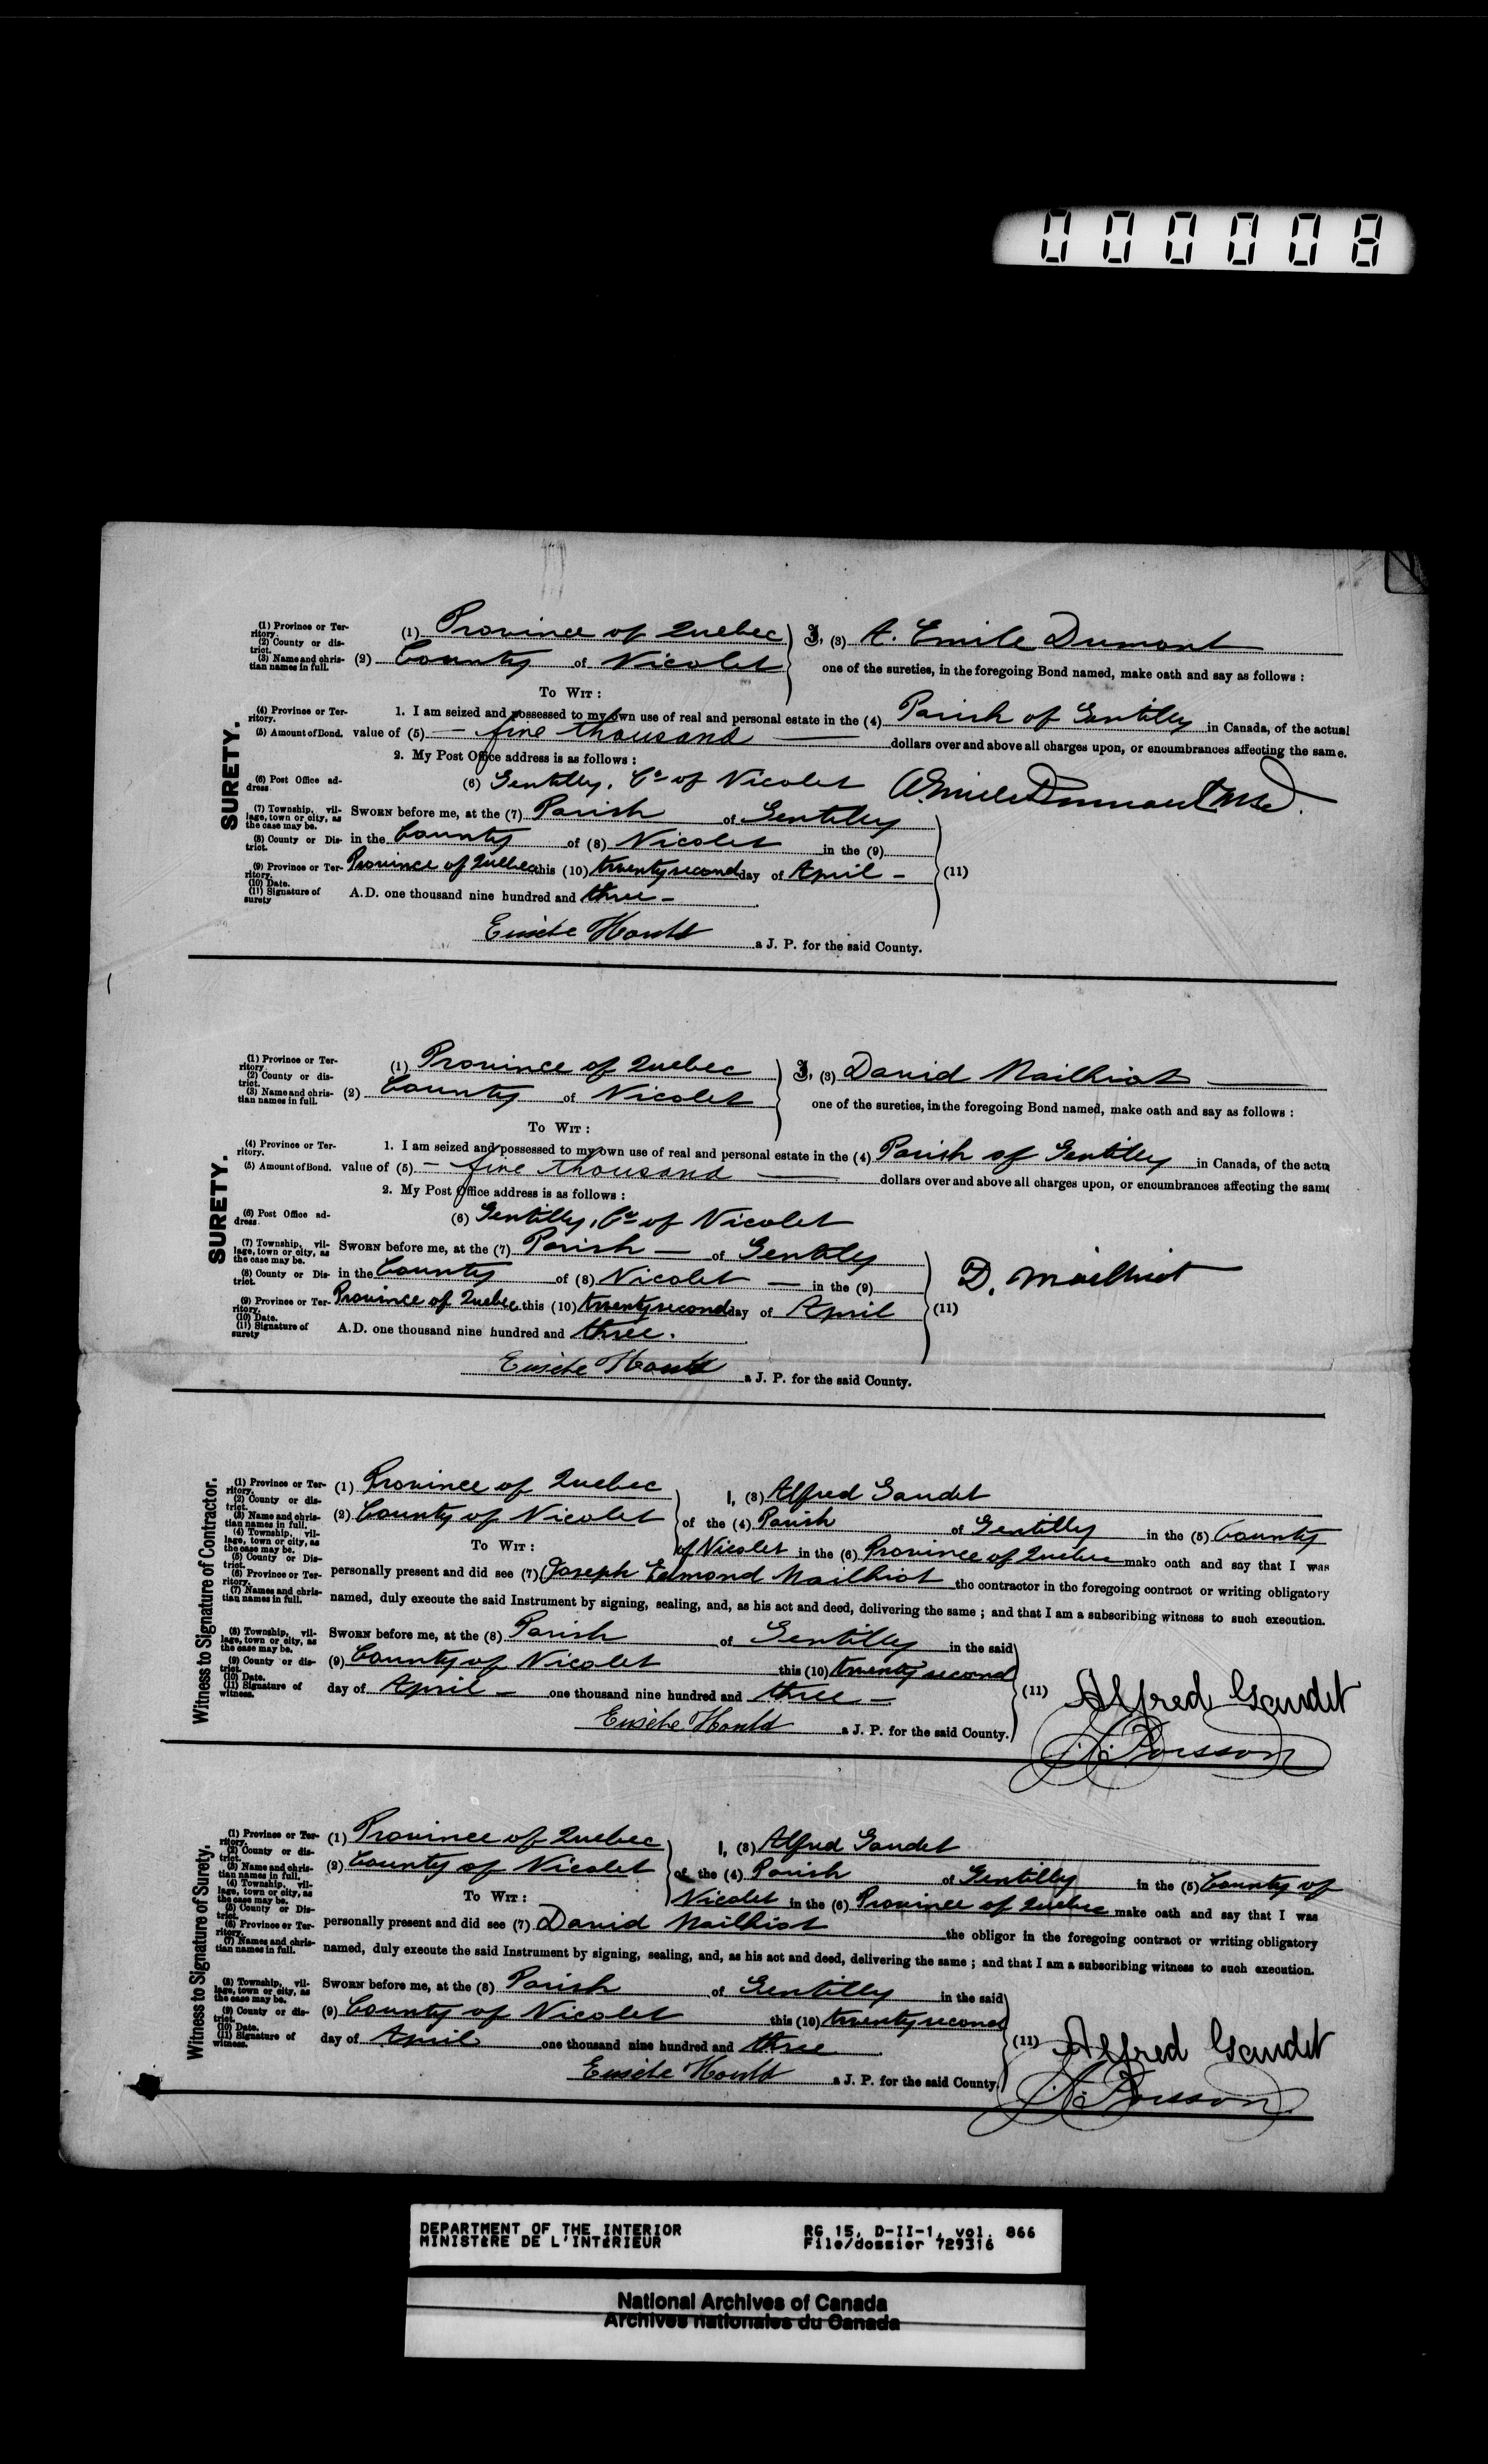 000008
(1) Province or Territory.
(2) County or district.
(3) Name and christian names in full.
(1) Province of Quebec
(2) County of Nicolet
To Wit :
I, (3) A. Emile Dumont
one of the sureties, in the foregoing Bond named, make oath and say as follows :
SURETY.
(4) Province or Territory.
1. I am seized and possessed to my own use of real and personal estate in the (4) Parish of Gentilly in Canada, of the actual
(5) Amount of Bond.
value of (5) — five thousand — dollars over and above all charges upon, or encumbrances affecting the same.
2. My Post Office address is as follows :
(6) Post Office address.
(6) Gentilly, Co of Nicolet
AEmile Dumont
(7) Township, village, town or city, as the case may be.
Sworn before me, at the (7) Parish of Gentilly
(8) County or District.
in the County of (8) Nicolet in the (9)
(9) Province or Territory.
Province of Quebec this (10) twenty second day of April –
(11)
(10) Date.
(11) Signature of surety
A.D. one thousand nine hundred and three –
Eusèbe Hould a J. P. for the said County.
(1) Province or Territory.
(2) County or district.
(3) Name and christian names in full.
(1) Province of Quebec
(2) County of Nicolet
To Wit :
I, (3) David Mailhiot —
one of the sureties, in the foregoing Bond named, make oath and say as follows :
SURETY.
(4) Province or Territory.
1. I am seized and possessed to my own use of real and personal estate in the (4) Parish of Gentilly in Canada, of the actu
(5) Amount of Bond.
value of (5) – five thousand — dollars over and above all charges upon, or encumbrances affecting the same
2. My Post Office address is as follows :
(6) Post Office address.
(6) Gentilly, Co of Nicolet
(7) Township, village, town or city, as the case may be.
Sworn before me, at the (7) Parish — of Gentilly
(8) County or District.
in the County of (8) Nicolet — in the (9)
D. Mailhiot
(9) Province or Territory.
Province of Quebec this (10) twenty second day of April
(11)
(10) Date.
(11) Signature of surety
A.D. one thousand nine hundred and three.
Eusèbe Hould a J. P. for the said County.
Witness to Signature of Contractor.
(1) Province or Territory.
(2) County or district.
(3) Name and christian names in full.
(4) Township, village, town or city, as the case may be.
(5) County or District.
(6) Province or Territory.
(7) Names and christian names in full.
(1) Province of Quebec
(2) County of Nicolet
To Wit :
I, (3) Alfred Gaudet
of the (4) Parish of Gentilly in the (5) County
of Nicolet in the (6) Province of Quebec make oath and say that I was
personally present and did see (7) Joseph Edmond Mailhiot the contractor in the foregoing contract or writing obligatory
named, duly execute the said Instrument by signing, sealing, and, as his act and deed, delivering the same ; and that I am a subscribing witness to such execution.
(8) Township, village, town or city, as the case may be.
(9) County or district.
(10) Date.
(11) Signature of witness.
Sworn before me, at the (8) Parish of Gentilly in the said
(9) County of Nicolet this (10) twenty second
day of April – one thousand nine hundred and three –
(11) Alfred Gaudet
Eusèbe Hould a J. P. for the said County.
Poisson
Witness to Signature of Surety.
(1) Province or Territory.
(2) County or district.
(3) Name and christian names in full.
(4) Township, village, town or city, as the case may be.
(5) County or District.
(6) Province or Territory.
(7) Names and christian names in full.
(1) Province of Quebec
(2) County of Nicolet
To Wit :
I, (3) Alfred Gaudet
of the (4) Parish of Gentilly in the (5) County of
Nicolet in the (6) Province of Quebec make oath and say that I was
personally present and did see (7) David Mailhiot the obligor in the foregoing contract or writing obligatory
named, duly execute the said Instrument by signing, sealing, and, as his act and deed, delivering the same ; and that I am a subscribing witness to such execution.
(8) Township, village, town or city, as the case may be.
(9) County or district.
(10) Date.
(11) Signature of witness.
Sworn before me, at the (8) Parish of Gentilly in the said
(9) County of Nicolet this (10) twenty second
day of April one thousand nine hundred and three
(11) Alfred Gaudet
Eusèbe Hould a J. P. for the said County.
Poisson
DEPARTMENT OF THE INTERIOR
MINISTÈRE DE L'INTÉRIEUR
RG 15, D-II-1, vol. 866
File/dossier 729316
National Archives of Canada
Archives nationales du Canada